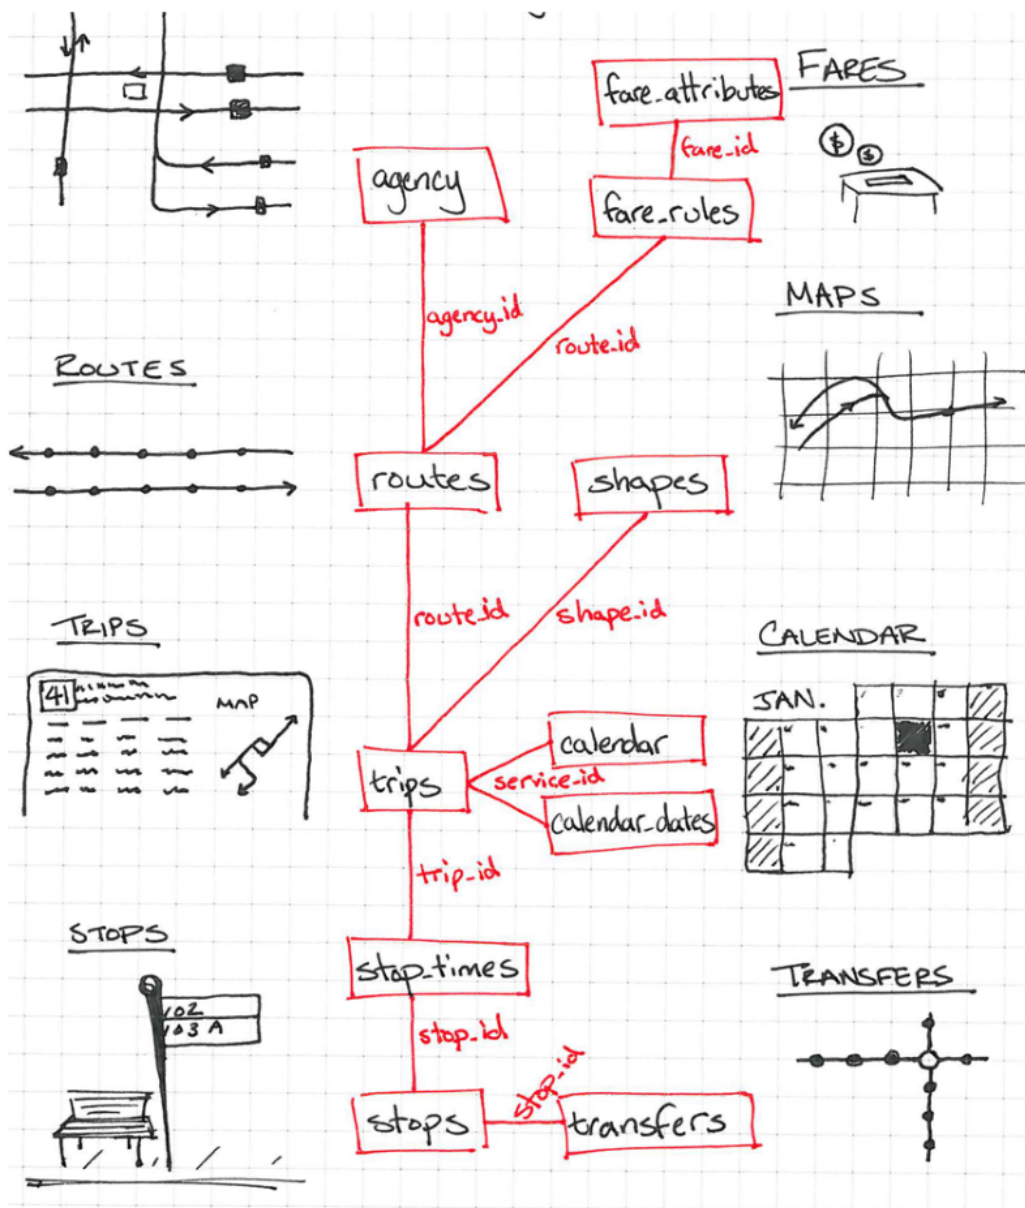 fare_attributes
FARES
$
$
fare_id
agency
fare_rules
MAPS
agency_id
route_id
ROUTES
routes
shapes
route_id
shape_id
TRIPS
CALENDAR
41
MAP
JAN.
calendar
trips
service_id
calendar_dates
trip_id
STOPS
stop_times
TRANSFERS
102
103 A
stop_id
stop_id
stops
transfers